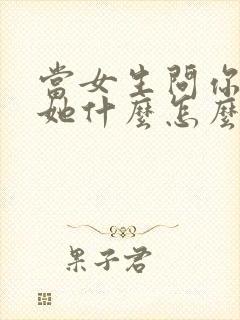 當女生問你
她什麼怎麼
果子君